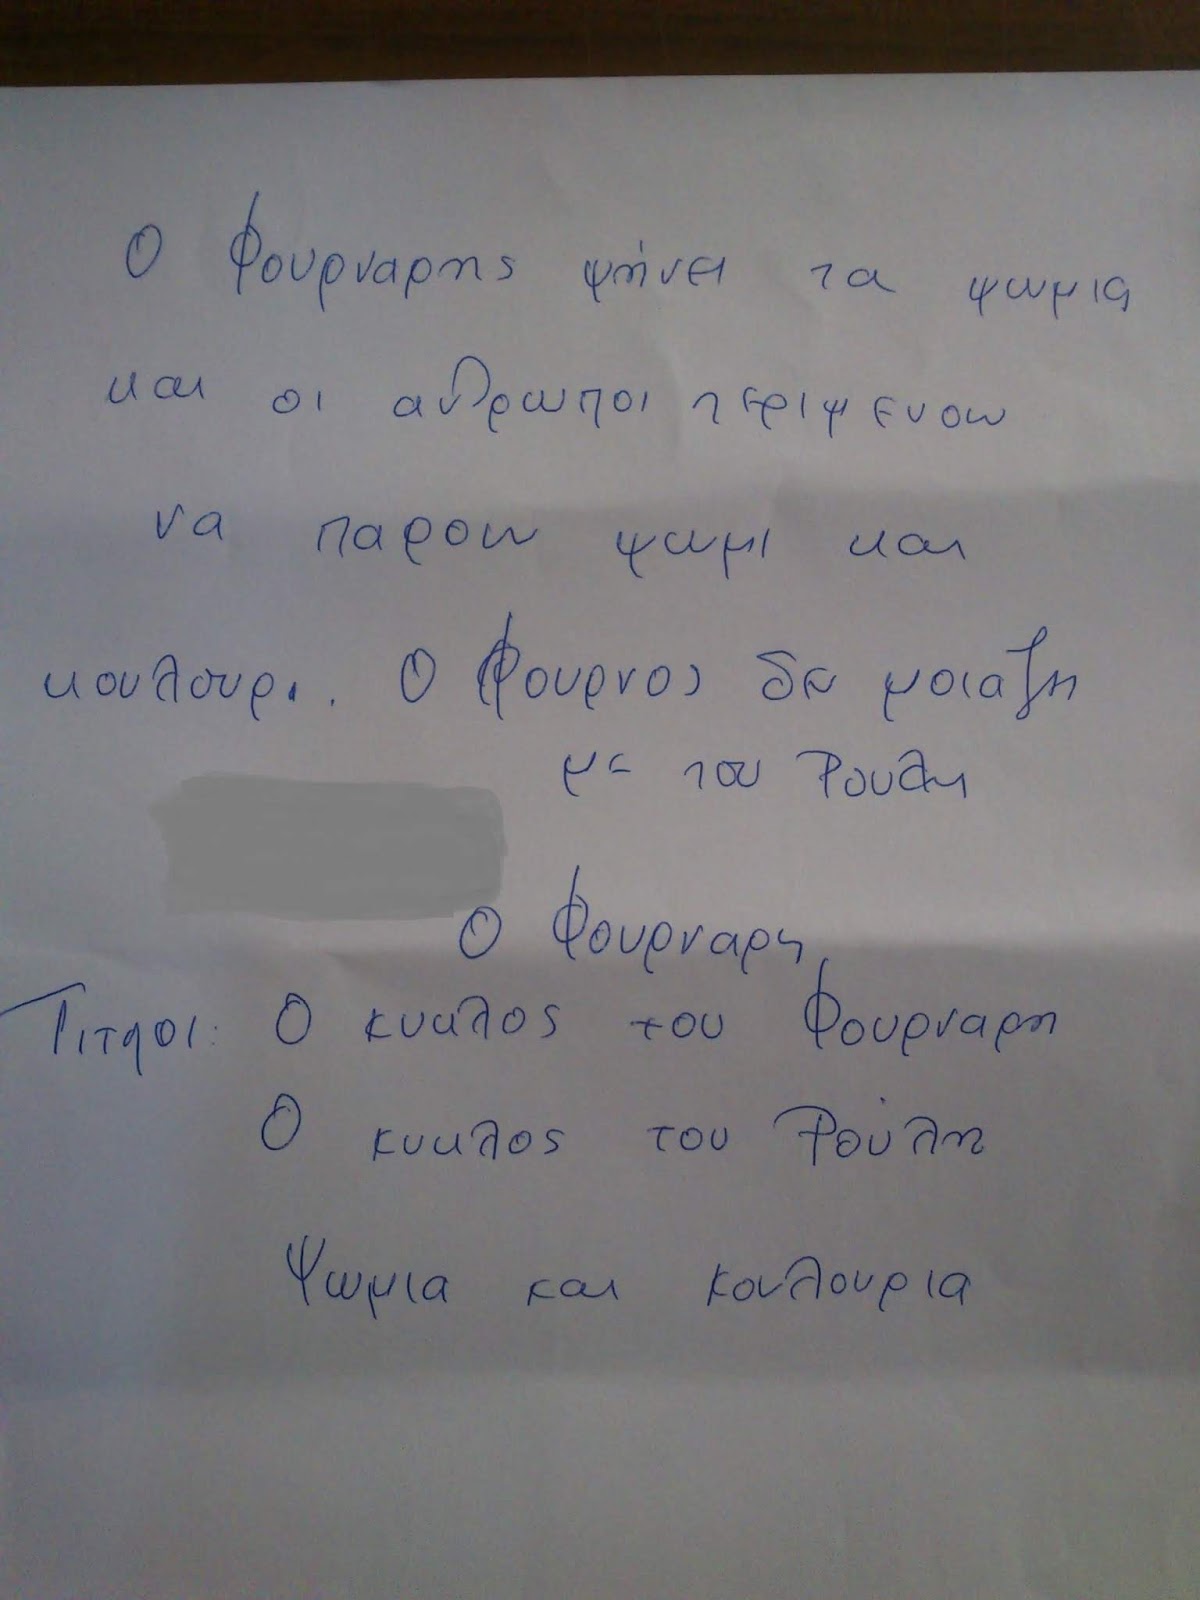 Ο Φουρναρης ψήνει τα ψωμια
και οι ανθρωποι περιμενουν
να παρουν ψωμι και
κουλουρι. Ο Φουρνος δεν μοιαζη
με του Ρουλη
Ο Φουρναρης
Τιτλοι: Ο κυκλος του Φουρναρη
Ο κυκλος του Ρούλη
Ψωμια και κουλουρια